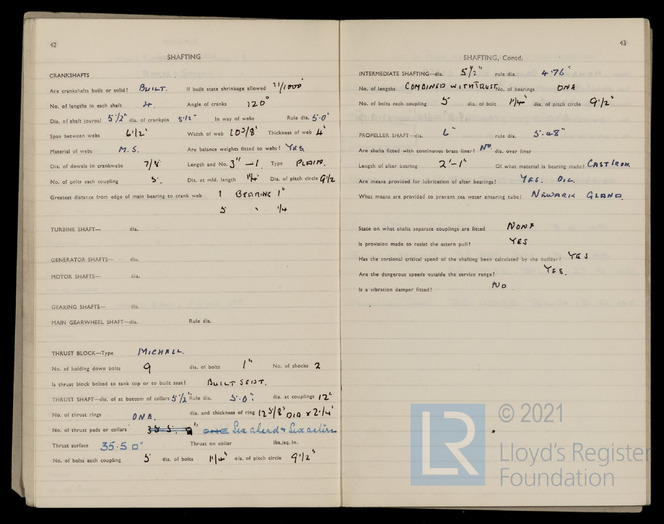 42
SHAFTING
CRANKSHAFTS
Are crankshafts built or solid? BUILT. If built state shrinkage allowed 7/1000"
No. of lengths in each shaft 4. Angle of cranks 120°
Dia. of shaft journal 5½" dia. of crankpin 5½" In way of webs Rule dia. 5·0"
Span between webs 6½" Width of web 10⅜" Thickness of web 4"
Material of webs M.S. Are balance weights fitted to webs? YES.
Dia. of dowels in crankwebs 7/8 Length and No. 3" — 1. Type PLAIN.
No. of bolts each coupling 5. Dia. at mid. length 1¼" Dia. of pitch circle 9½
Greatest distance from edge of main bearing to crank web 1 BEARING 1"
5 " ¼
TURBINE SHAFT— dia.
GENERATOR SHAFTS— dia.
MOTOR SHAFTS— dia.
GEARING SHAFTS— dia.
MAIN GEARWHEEL SHAFT—dia. Rule dia.
THRUST BLOCK—Type MICHALL.
No. of holding down bolts 9 dia. of bolts 1" No. of chocks 2
Is thrust block bolted to tank top or to built seat? BUILT SEAT.
THRUST SHAFT—dia. of at bottom of collars 5½" Rule dia. 5·0" dia. at couplings 12"
No. of thrust rings ONE. dia. and thickness of ring 12⅝" DIA × 2¼"
No. of thrust pads or collars Six ahead & Six astern
Thrust surface 35·5 □" Thrust on collar lbs./sq. in.
No. of bolts each coupling 5 dia. of bolts 1¼" dia. of pitch circle 9½"
43
SHAFTING, Contd.
INTERMEDIATE SHAFTING—dia. 5½" rule dia. 4·76"
No. of lengths COMBINED WITH THRUST No. of bearings ONE
No. of bolts each coupling 5 dia. of bolt 1¼" dia. of pitch circle 9½"
PROPELLER SHAFT—dia. 6" rule dia. 5·48"
Are shafts fitted with continuous brass liner? NO dia. over liner
Length of after bearing 2'-1" Of what material is bearing made? CAST IRON
Are means provided for lubrication of after bearings? YES. OIL
What means are provided to prevent sea water entering tube? NEWARK GLAND.
State on what shafts separate couplings are fitted NONE
Is provision made to resist the astern pull? YES
Has the torsional critical speed of the shafting been calculated by the builder? YES
Are the dangerous speeds outside the service range? YES.
Is a vibration damper fitted? NO
LR
© 2021
Lloyd's Register
Foundation